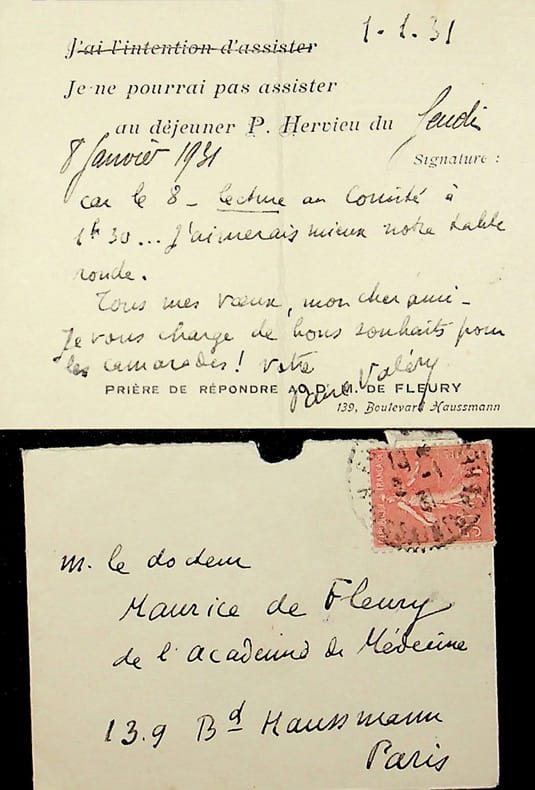 1-1.31
J'ai l'intention d'assister
Je ne pourrai pas assister
au déjeuner P. Hervieu du Jeudi
8 Janvier 1931
Signature :
car le 8 - lecture au Comité à
1h 30... J'aimerais mieux notre table
ronde.
Tous mes vœux, mon cher ami -
Je vous charge de bons souhaits pour
les camarades ! Votre
Valéry
PRIÈRE DE RÉPONDRE AU Dr M. DE FLEURY
139, Boulevard Haussmann
M. le docteur
Maurice de Fleury
de l'Académie de Médecine
139 Bd Haussmann
Paris